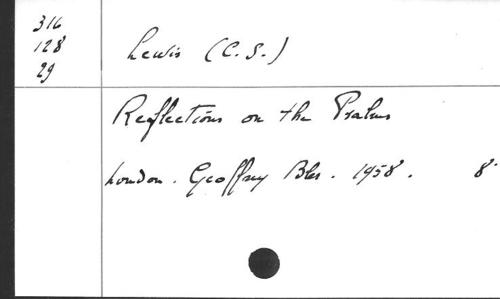 316
128
29
Lewis (C.S.)
Reflections on the Psalms
London. Geoffrey Bles. 1958. 8°